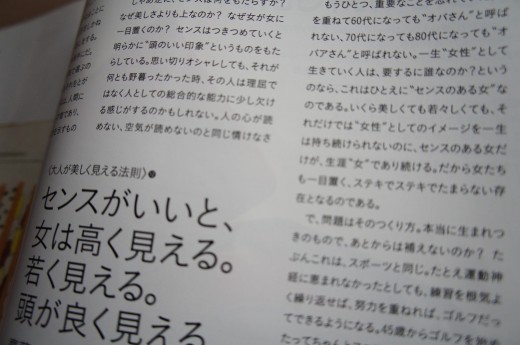 しゃあ止に、センスは何をもたらすか?
なぜ美しさよりも上なのか? なぜ女が女に
一目置くのか? センスはつきつめていくと
明らかに“頭のいい印象”というものをもた
らしている。思い切りオシャレしても、それが
何とも野暮ったかった時、その人は理屈で
はなく人としての総合的な能力に少し欠け
る感じがするのかもしれない。人の心が読
めない、空気が読めないのと同じ情けなさ
〈大人が美しく見える法則〉
センスがいいと、
女は高く見える。
若く見える。
頭が良く見える
もうひとつ、重要なことを忘れて
を重ねて60代になっても“オバさん”と呼ば
れない、70代になっても80代になっても“オ
バアさん”と呼ばれない。一生“女性”として
生きていく人は、要するに誰なのか?という
のなら、これはひとえに“センスのある女”な
のである。いくら美しくても若々しくても、そ
れだけでは“女性”としてのイメージを一生
は持ち続けられないのに、センスのある女だ
けが、生涯“女”であり続ける。だから女たち
も一目置く、ステキでステキでたまらない存
在となるのである。
で、問題はそのつくり方。本当に生まれつ
きのもので、あとからは補えないのか? た
ぶんこれは、スポーツと同じ。たとえ運動神
経に恵まれなかったとしても、練習を根気よ
く繰り返せば、努力を重ねれば、ゴルフだっ
てできるようになる。45歳からゴルフを始め